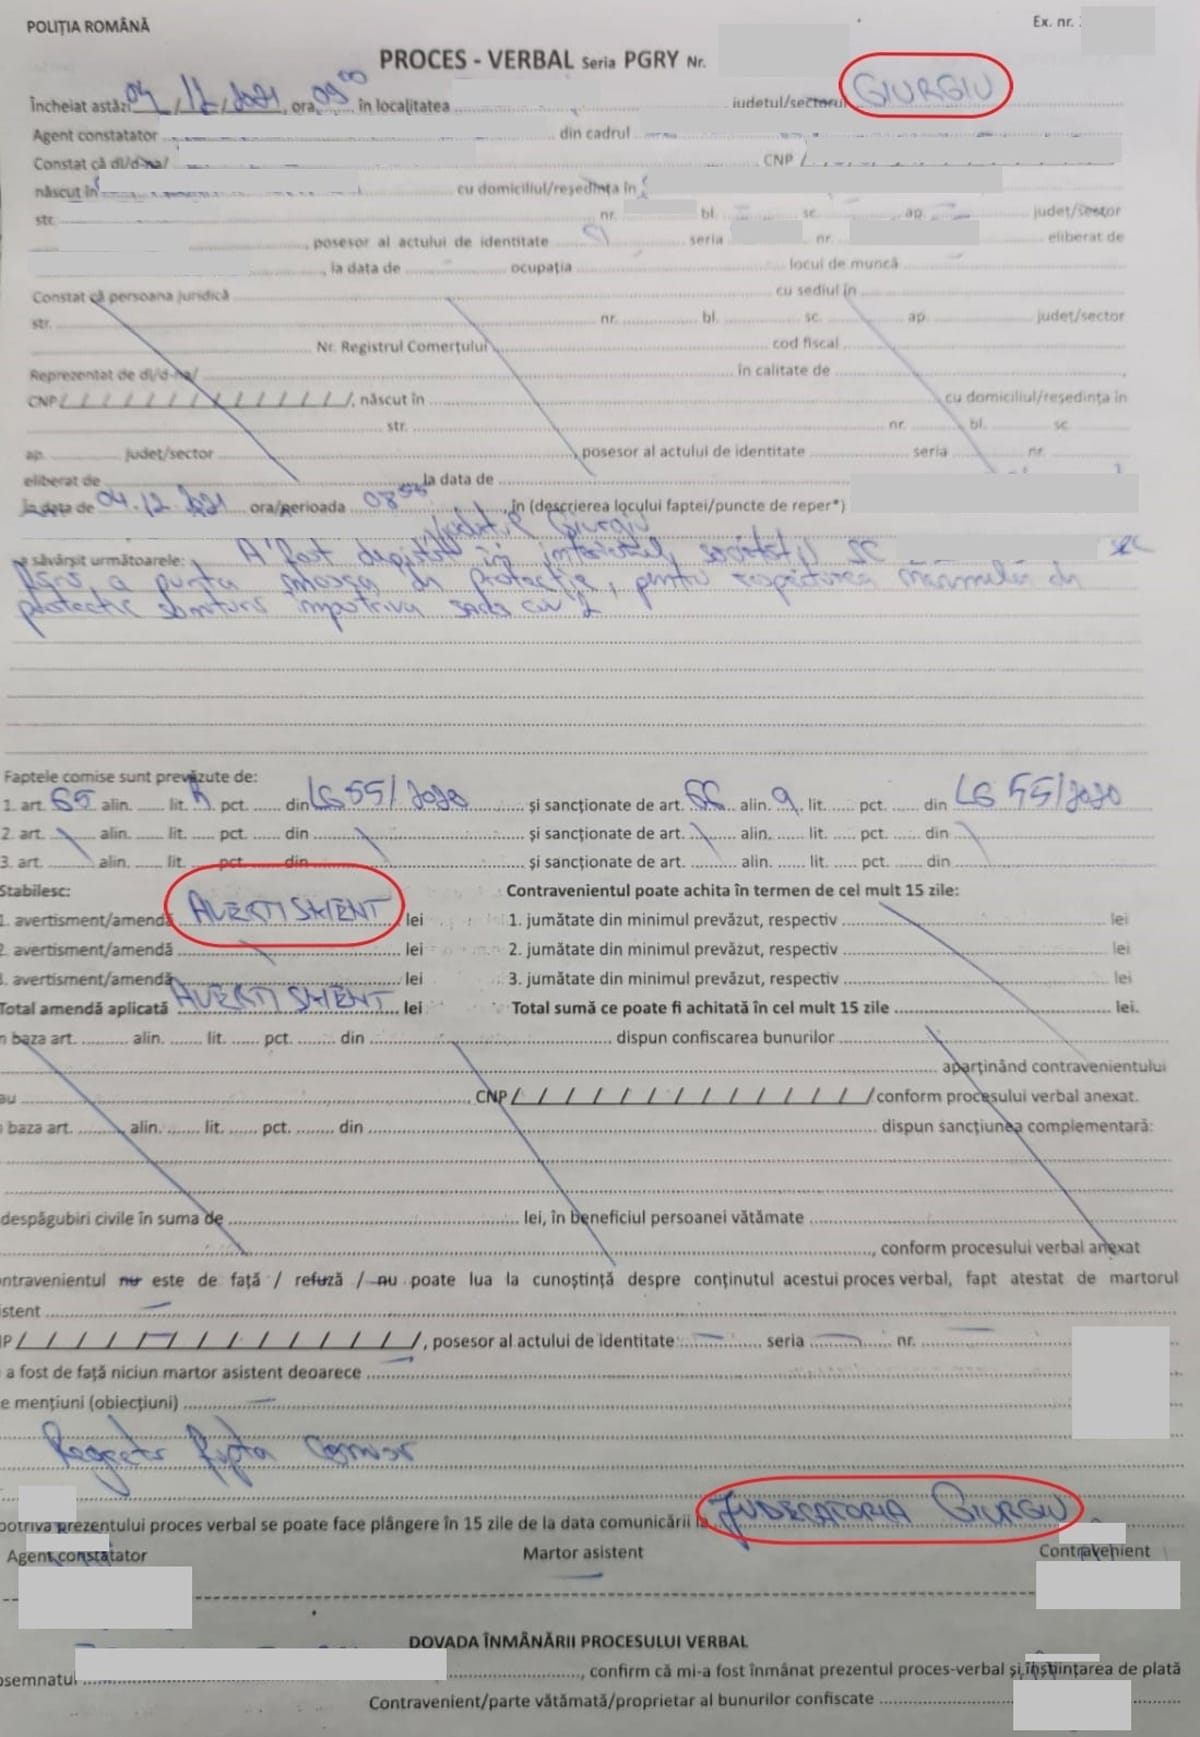 POLIȚIA ROMÂNĂ
Ex. nr.
PROCES - VERBAL Seria PGRY Nr.
Încheiat astăzi 04/12/2021, ora 09⁰⁰ în localitatea ..... județul/sectorul GIURGIU
Agent constatator ..... din cadrul .....
Constat că dl/d-na/ ..... CNP /
născut în ..... cu domiciliul/reședința în
str. ..... nr. ..... bl. ..... sc. ..... ap. ..... județ/sector
....., posesor al actului de identitate ..... seria ..... nr. ..... eliberat de
....., la data de ..... ocupația ..... locul de muncă .....
Constat că persoana juridică ..... cu sediul în .....
str. ..... nr. ..... bl. ..... sc. ..... ap. ..... județ/sector
..... Nr. Registrul Comerțului ..... cod fiscal .....
Reprezentat de dl/d-na/ ..... în calitate de .....,
CNP / / / / / / / / / / / / / /, născut în ..... cu domiciliul/reședința în
..... str. ..... nr. ..... bl. ..... sc
ap. ..... județ/sector ....., posesor al actului de identitate ..... seria ..... nr.
eliberat de ..... la data de .....
la data de 04.12.2021 ora/perioada 08⁵⁵, în (descrierea locului faptei/puncte de reper*)
județul Giurgiu
săvârșit următoarele: A fost depistat în interiorul societății SC
fără a purta masca de protecție, pentru respectarea măsurilor de
protecție împotriva sars cov 2
Faptele comise sunt prevăzute de:
1. art. 65 alin. ..... lit. h pct. ..... din LG 55/2020 ..... și sancționate de art. 66 alin. 9 lit. ..... pct. ..... din LG 55/2020
2. art. ..... alin. ..... lit. ..... pct. ..... din ..... și sancționate de art. ..... alin. ..... lit. ..... pct. ..... din .....
3. art. ..... alin. ..... lit. ..... pct. ..... din ..... și sancționate de art. ..... alin. ..... lit. ..... pct. ..... din .....
Stabilesc: Contravenientul poate achita în termen de cel mult 15 zile:
1. avertisment/amendă AVERTISMENT lei 1. jumătate din minimul prevăzut, respectiv ..... lei
2. avertisment/amendă ..... lei 2. jumătate din minimul prevăzut, respectiv ..... lei
3. avertisment/amendă ..... lei 3. jumătate din minimul prevăzut, respectiv ..... lei
Total amendă aplicată AVERTISMENT lei Total sumă ce poate fi achitată în cel mult 15 zile ..... lei.
n baza art. ..... alin. ..... lit. ..... pct. ..... din ..... dispun confiscarea bunurilor .....
..... aparținând contravenientului
au ....., CNP / / / / / / / / / / / / / / conform procesului verbal anexat.
baza art. ..... alin. ..... lit. ..... pct. ..... din ..... dispun sancțiunea complementară:
despăgubiri civile în suma de ..... lei, în beneficiul persoanei vătămate .....
....., conform procesului verbal anexat
ontravenientul nu este de față / refuză / nu poate lua la cunoștință despre conținutul acestui proces verbal, fapt atestat de martorul
istent .....
NP / / / / / / / / / / / / / /, posesor al actului de identitate ..... seria ..... nr. .....
a fost de față niciun martor asistent deoarece .....
e mențiuni (obiecțiuni) .....
Regret fapta comisă
potriva prezentului proces verbal se poate face plângere în 15 zile de la data comunicării la JUDECATORIA GIURGIU
Agent constatator Martor asistent Contravenient
DOVADA ÎNMÂNĂRII PROCESULUI VERBAL
osemnatul ....., confirm că mi-a fost înmânat prezentul proces-verbal și înștiințarea de plată
Contravenient/parte vătămată/proprietar al bunurilor confiscate .....